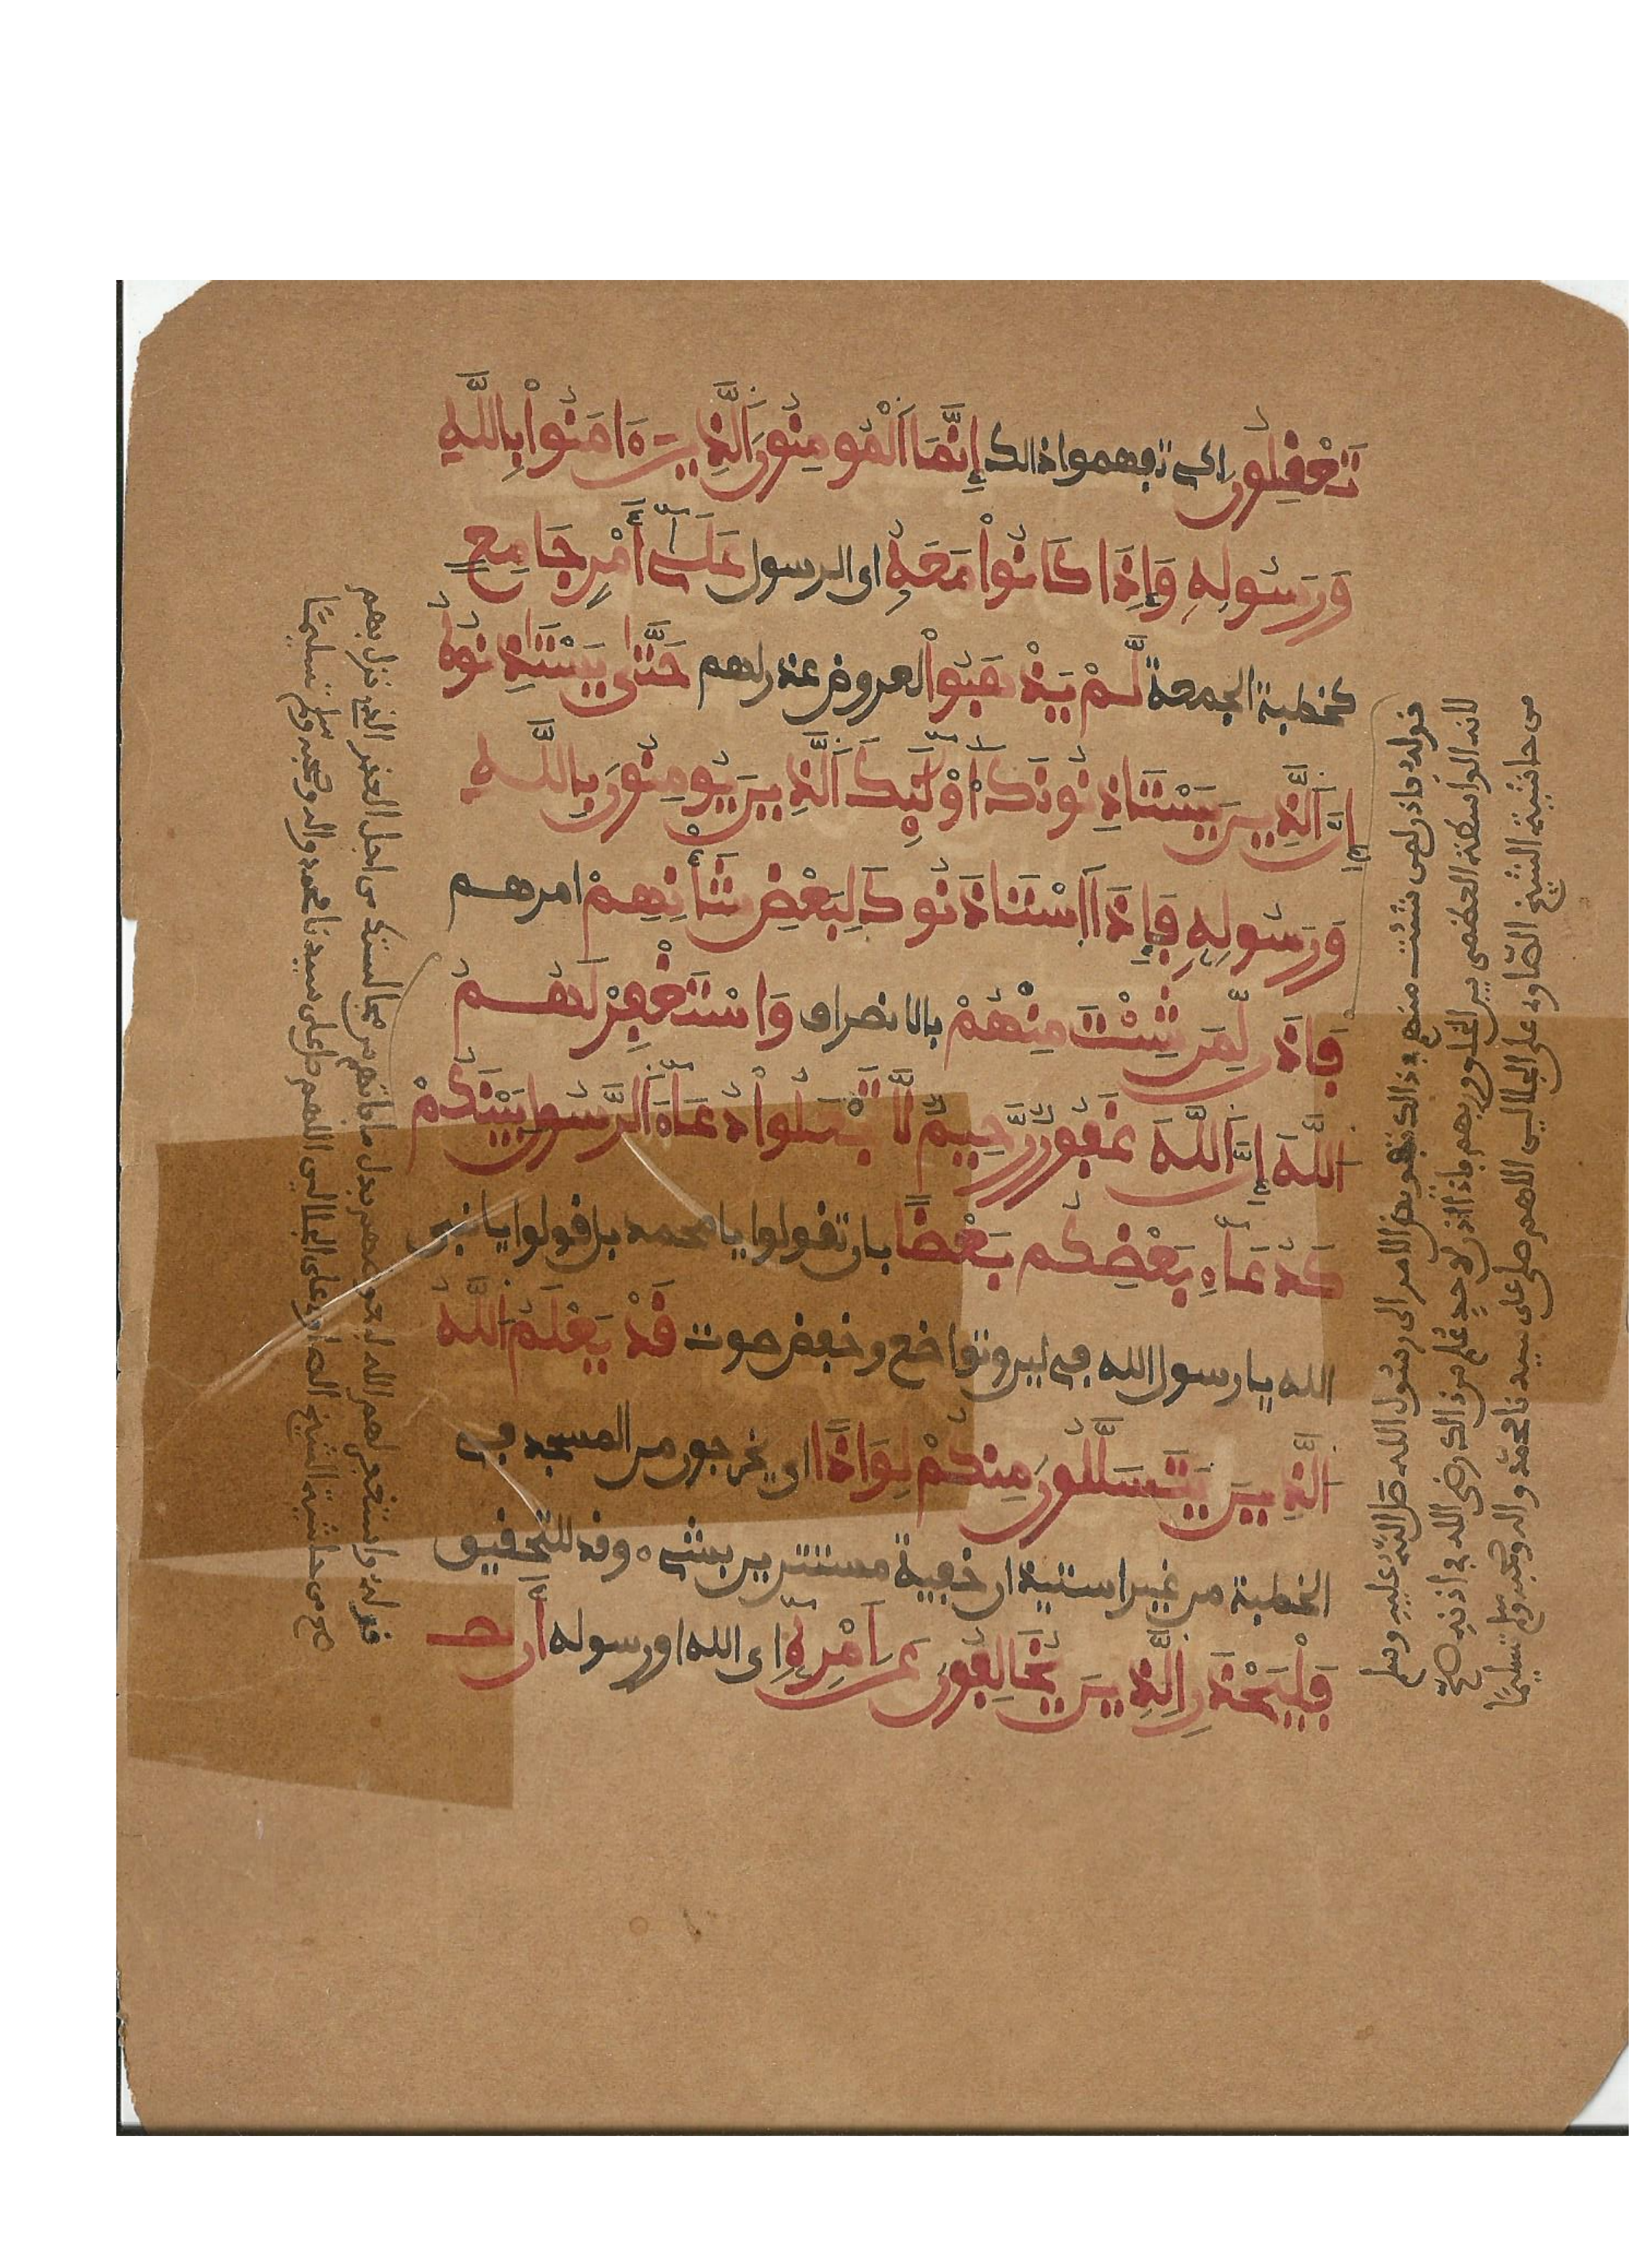 تَعْفِلُورَ اى تفهموا ذالك إِنَّمَا اَلْمُومِنُونَ اَلذِينَ ءَامَنُواْ بِاللَّهِ
وَرَسُولِهِ وَإِذَا كَانُواْ مَعَهُ اى الرسول عَلَىٰ أَمْرٍ جَامِعٍ
كخطبة الجمعة لَّمْ يَذْهَبُواْ لعروض عذر لهم حَتَّىٰ يَسْتَاذِنُوهُ
إِنَّ اَلذِينَ يَسْتَاذِنُونَكَ أُوْلَٰئِكَ اَلذِينَ يُومِنُونَ بِاللَّهِ
وَرَسُولِهِ فَإِذَا اَسْتَاذَنُوكَ لِبَعْضِ شَأْنِهِمْ امرهم
فَاذَن لِّمَن شِئْتَ مِنْهُمْ بالانصراف وَاسْتَغْفِرْ لَهُمُ
اللَّهَ إِنَّ اَللَّهَ غَفُورٌ رَّحِيمٌ لَّا تَجْعَلُواْ دُعَآءَ اَلرَّسُولِ بَيْنَكُمْ
كَدُعَآءِ بَعْضِكُم بَعْضًا بان تقولوا يا محمد بل قولوا يا نبى
الله يا رسول الله فى لين وتواضع وخفض صوت قَدْ يَعْلَمُ اللَّهُ
اَلذِينَ يَتَسَلَّلُونَ مِنكُمْ لِوَاذًا اى يخرجون من المسجد فى
الخطبة من غير استيذان خفية مستترين بشىء وقد للتحقيق
فَلْيَحْذَرِ اِلذِينَ يُخَالِفُونَ عَنَ اَمْرِهِ اى الله او رسوله أَن تص
قوله فاذن لمن شئت منهم فى ذالك تفويض الامر الى رسول الله صلى الله عليه وسلم
لانه الواسطة العظمى بين الخلق وربهم فاذا اذن لاحد علم من ذالك رضى الله فى اذنه صح
من حاشية الشيخ الصاوى على الجلالين اللهم صل على سيدنا محمد واله وصحبه وسلم تسليما
قوله واستغفر لهم الله اى عوضهم بدل ما فاتهم من مجالستك من اجل العذر الذى نزل بهم
صح من حاشية الشيخ الصاوى على الجلالين اللهم صل على سيدنا محمد واله وصحبه وسلم تسليما